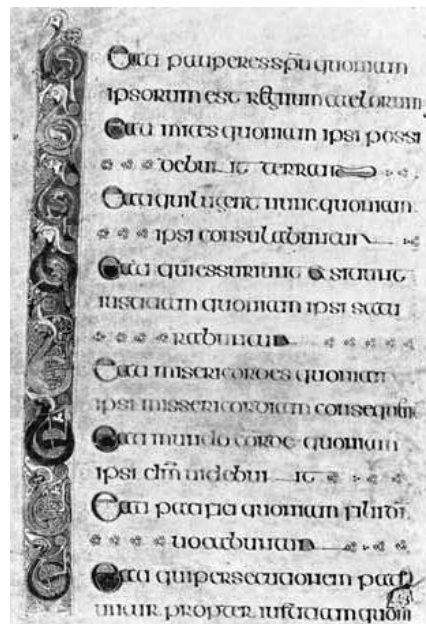 Beati pauperes spū quoniam
ipsorum est regnum caelorum
Beati mites quoniam ipsi possi
debunt terram
Beati qui lugent nunc quoniam
ipsi consulabuntur
Beati qui essuriunt & sitiunt
iustitiam quoniam ipsi satu
rabuntur
Beati misericordes quoniam
ipsi missericordiam
Beati mundo corde quoniam
ipsi dm̄ uidebunt
Beati pacifici quoniam filii dī
uocabuntur
Beati qui persecutionem pati
untur propter iustitiam quoni